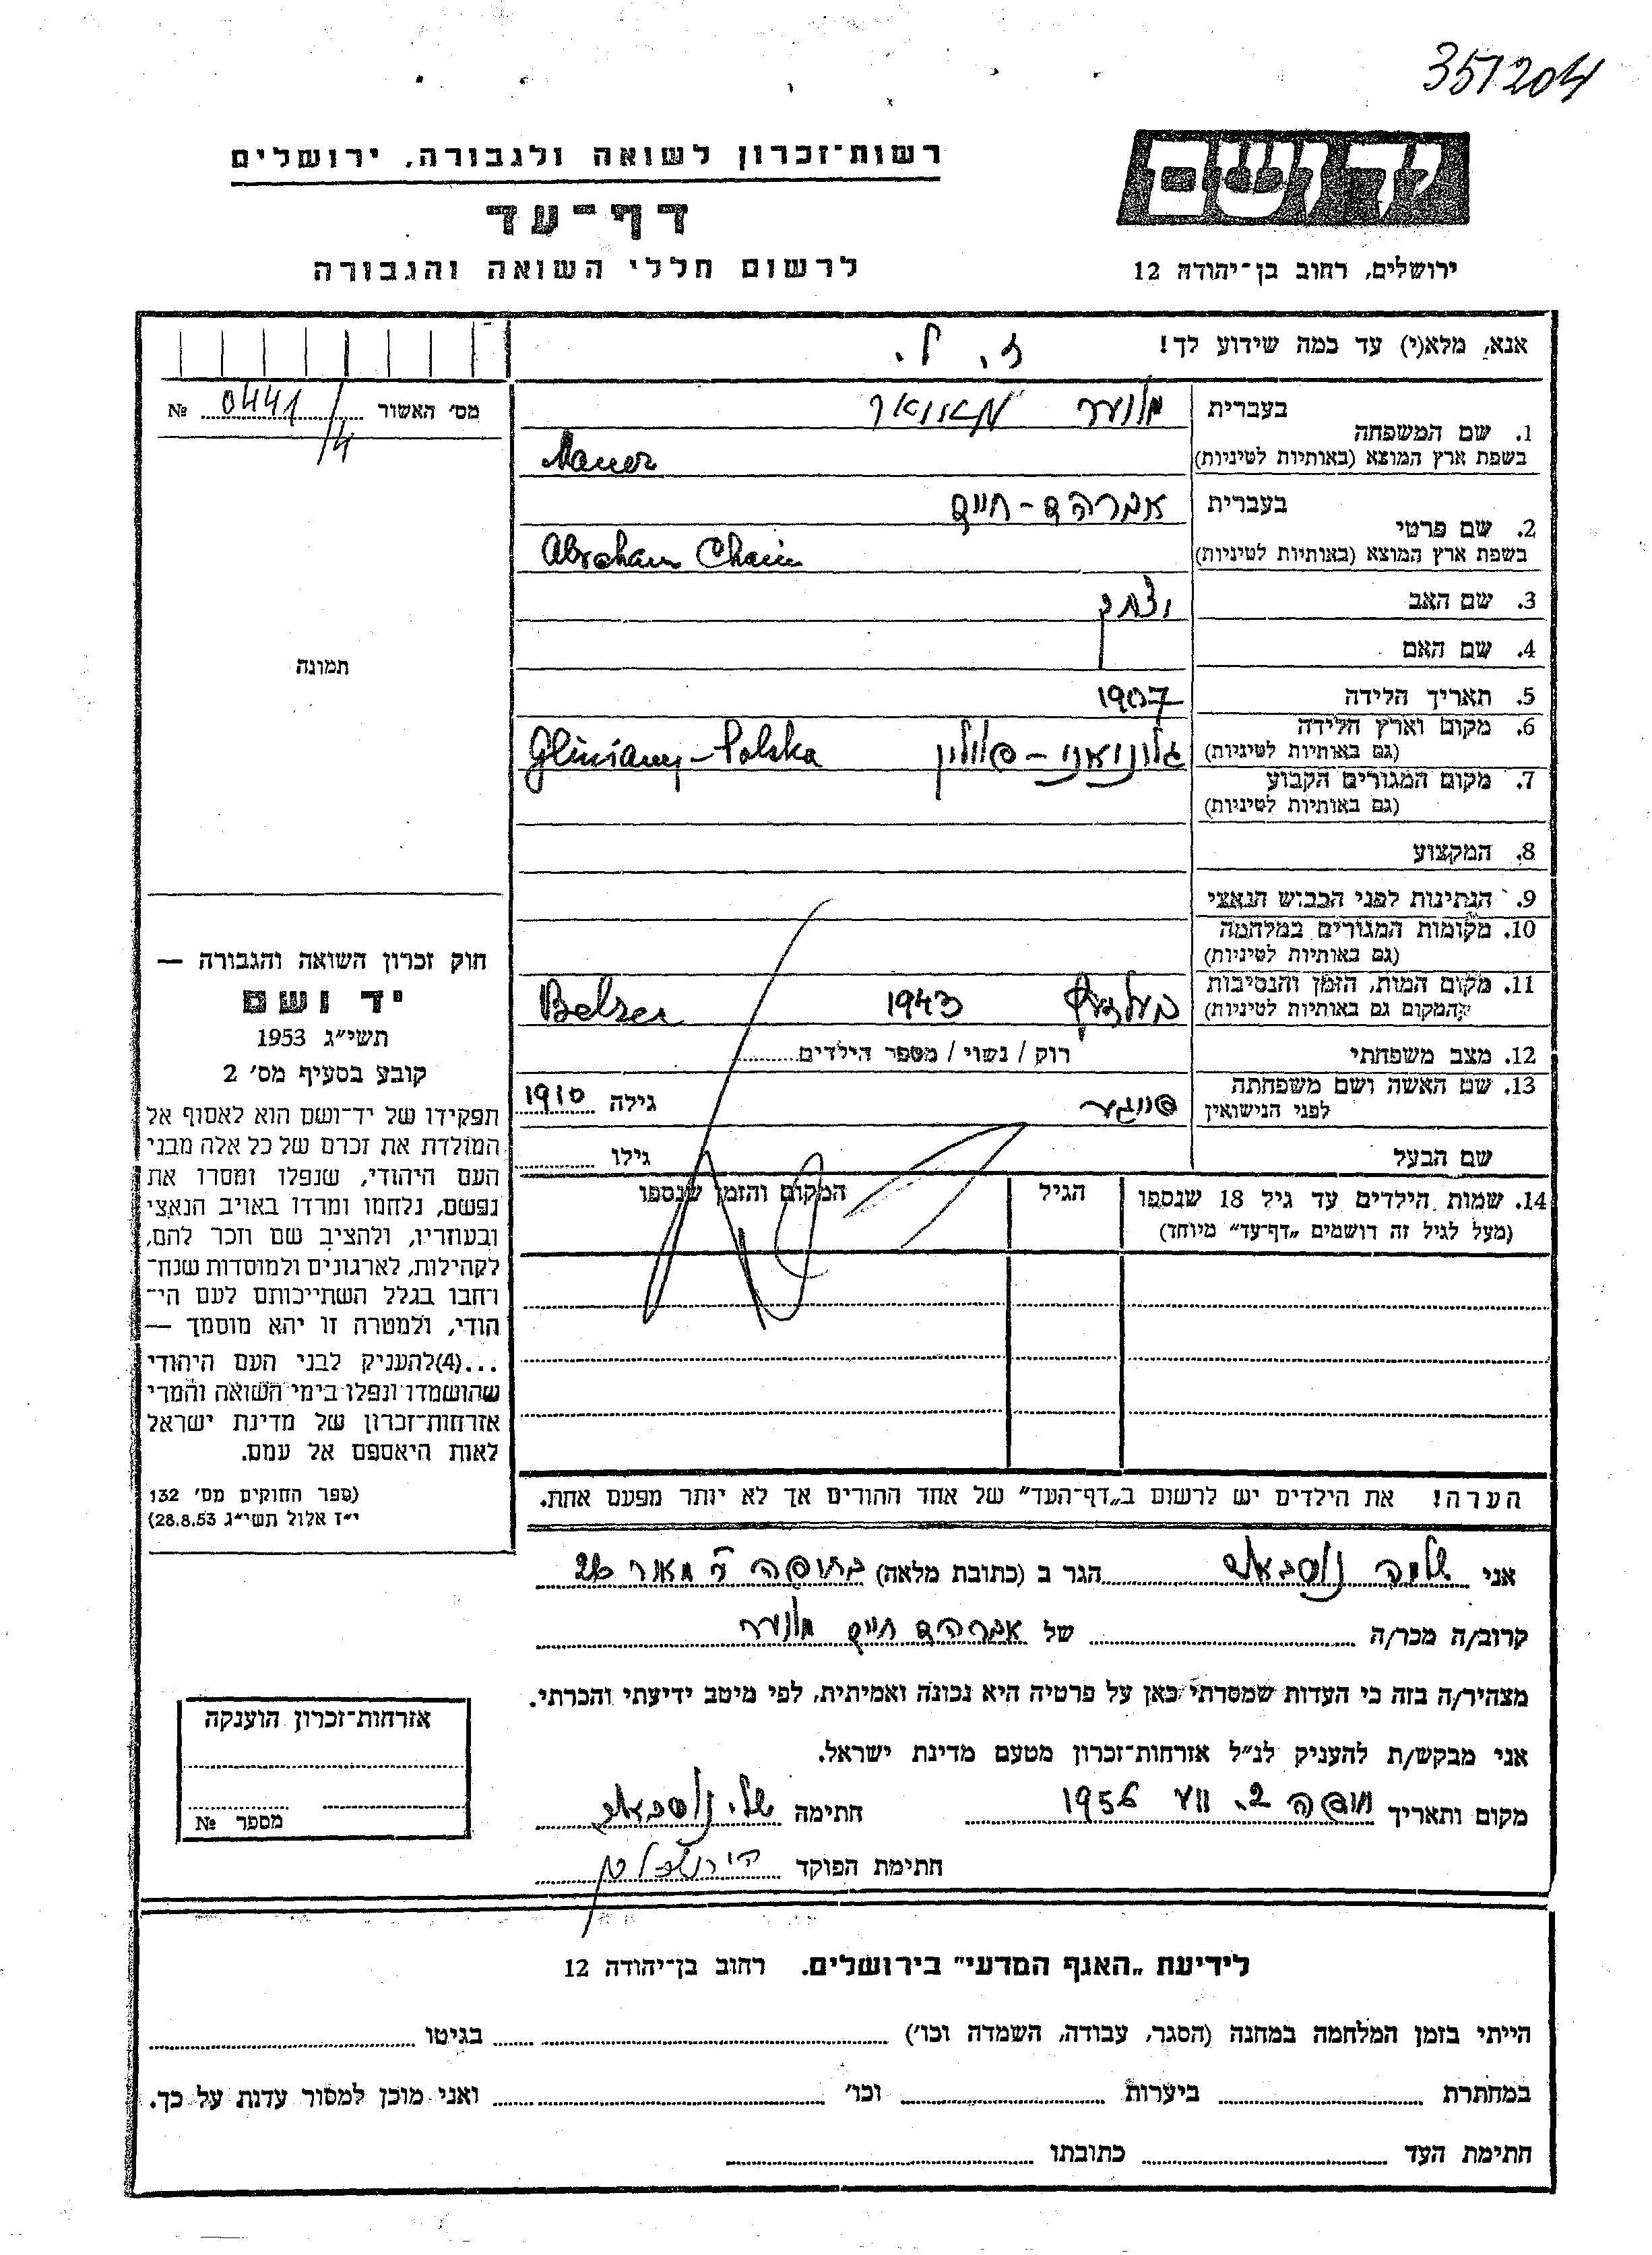 351204
רשות־זכרון לשואה ולגבורה, ירושלים
יד ושם
דף־עד
לרשום חללי השואה והגבורה
ירושלים, רחוב בן־יהודה 12
אנא, מלא(י) עד כמה שידוע לך!
מס' האשור 0441/4 №
1. שם המשפחה
בעברית מאוער
בשפת ארץ המוצא (באותיות לטיניות) Mauer
2. שם פרטי
בעברית אברהם-חיים
בשפת ארץ המוצא (באותיות לטיניות) Abraham Chaim
3. שם האב יצחק
4. שם האם
5. תאריך הלידה 1907
6. מקום וארץ הלידה
(גם באותיות לטיניות) גלוניאני - פולין Gliniany-Polska
7. מקום המגורים הקבוע
(גם באותיות לטיניות)
8. המקצוע
9. הנתינות לפני הכבוש הנאצי
10. מקומות המגורים במלחמה
(גם באותיות לטיניות)
11. מקום המות, הזמן והנסיבות
(המקום גם באותיות לטיניות) בעלזעץ 1943 Belzec
12. מצב משפחתי רוק / נשוי / מספר הילדים
13. שם האשה ושם משפחתה
לפני הנישואין גילה 1910
שם הבעל גילו
14. שמות הילדים עד גיל 18 שנספו
(מעל לגיל זה רושמים „דף־עד" מיוחד)
הגיל
המקום והזמן שנספו
הערה! את הילדים יש לרשום ב„דף־העד" של אחד ההורים אך לא יותר מפעם אחת.
תמונה
חוק זכרון השואה והגבורה —
יד ושם
תשי"ג 1953
קובע בסעיף מס' 2
תפקידו של יד־ושם הוא לאסוף אל
המולדת את זכרם של כל אלה מבני
העם היהודי, שנפלו ומסרו את
נפשם, נלחמו ומרדו באויב הנאצי
ובעוזריו, ולהציב שם וזכר להם,
לקהילות, לארגונים ולמוסדות שנח־
רחבו בגלל השתייכותם לעם הי־
הודי, ולמטרה זו יהא מוסמך —
...(4)להעניק לבני העם היהודי
שהושמדו ונפלו בימי השואה והמרי
אזרחות־זכרון של מדינת ישראל
לאות היאספם אל עמם.
(ספר החוקים מס' 132
י"ז אלול תשי"ג 28.8.53)
אני שלמה נוסבאום הגר ב (כתובת מלאה)
קרוב/ה מכר/ה של אברהם חיים מאוער
מצהיר/ה בזה כי העדות שמסרתי כאן על פרטיה היא נכונה ואמיתית, לפי מיטב ידיעתי והכרתי.
אני מבקש/ת להעניק לנ"ל אזרחות־זכרון מטעם מדינת ישראל.
מקום ותאריך חיפה 2. VII 1956 חתימה של. נוסבאום
חתימת הפוקד
אזרחות־זכרון הוענקה
מספר №
לידיעת „האגף המדעי" בירושלים. רחוב בן־יהודה 12
הייתי בזמן המלחמה במחנה (הסגר, עבודה, השמדה וכו') בגיטו
במחתרת ביערות וכו' ואני מוכן למסור עדות על כך.
חתימת העד כתובתו